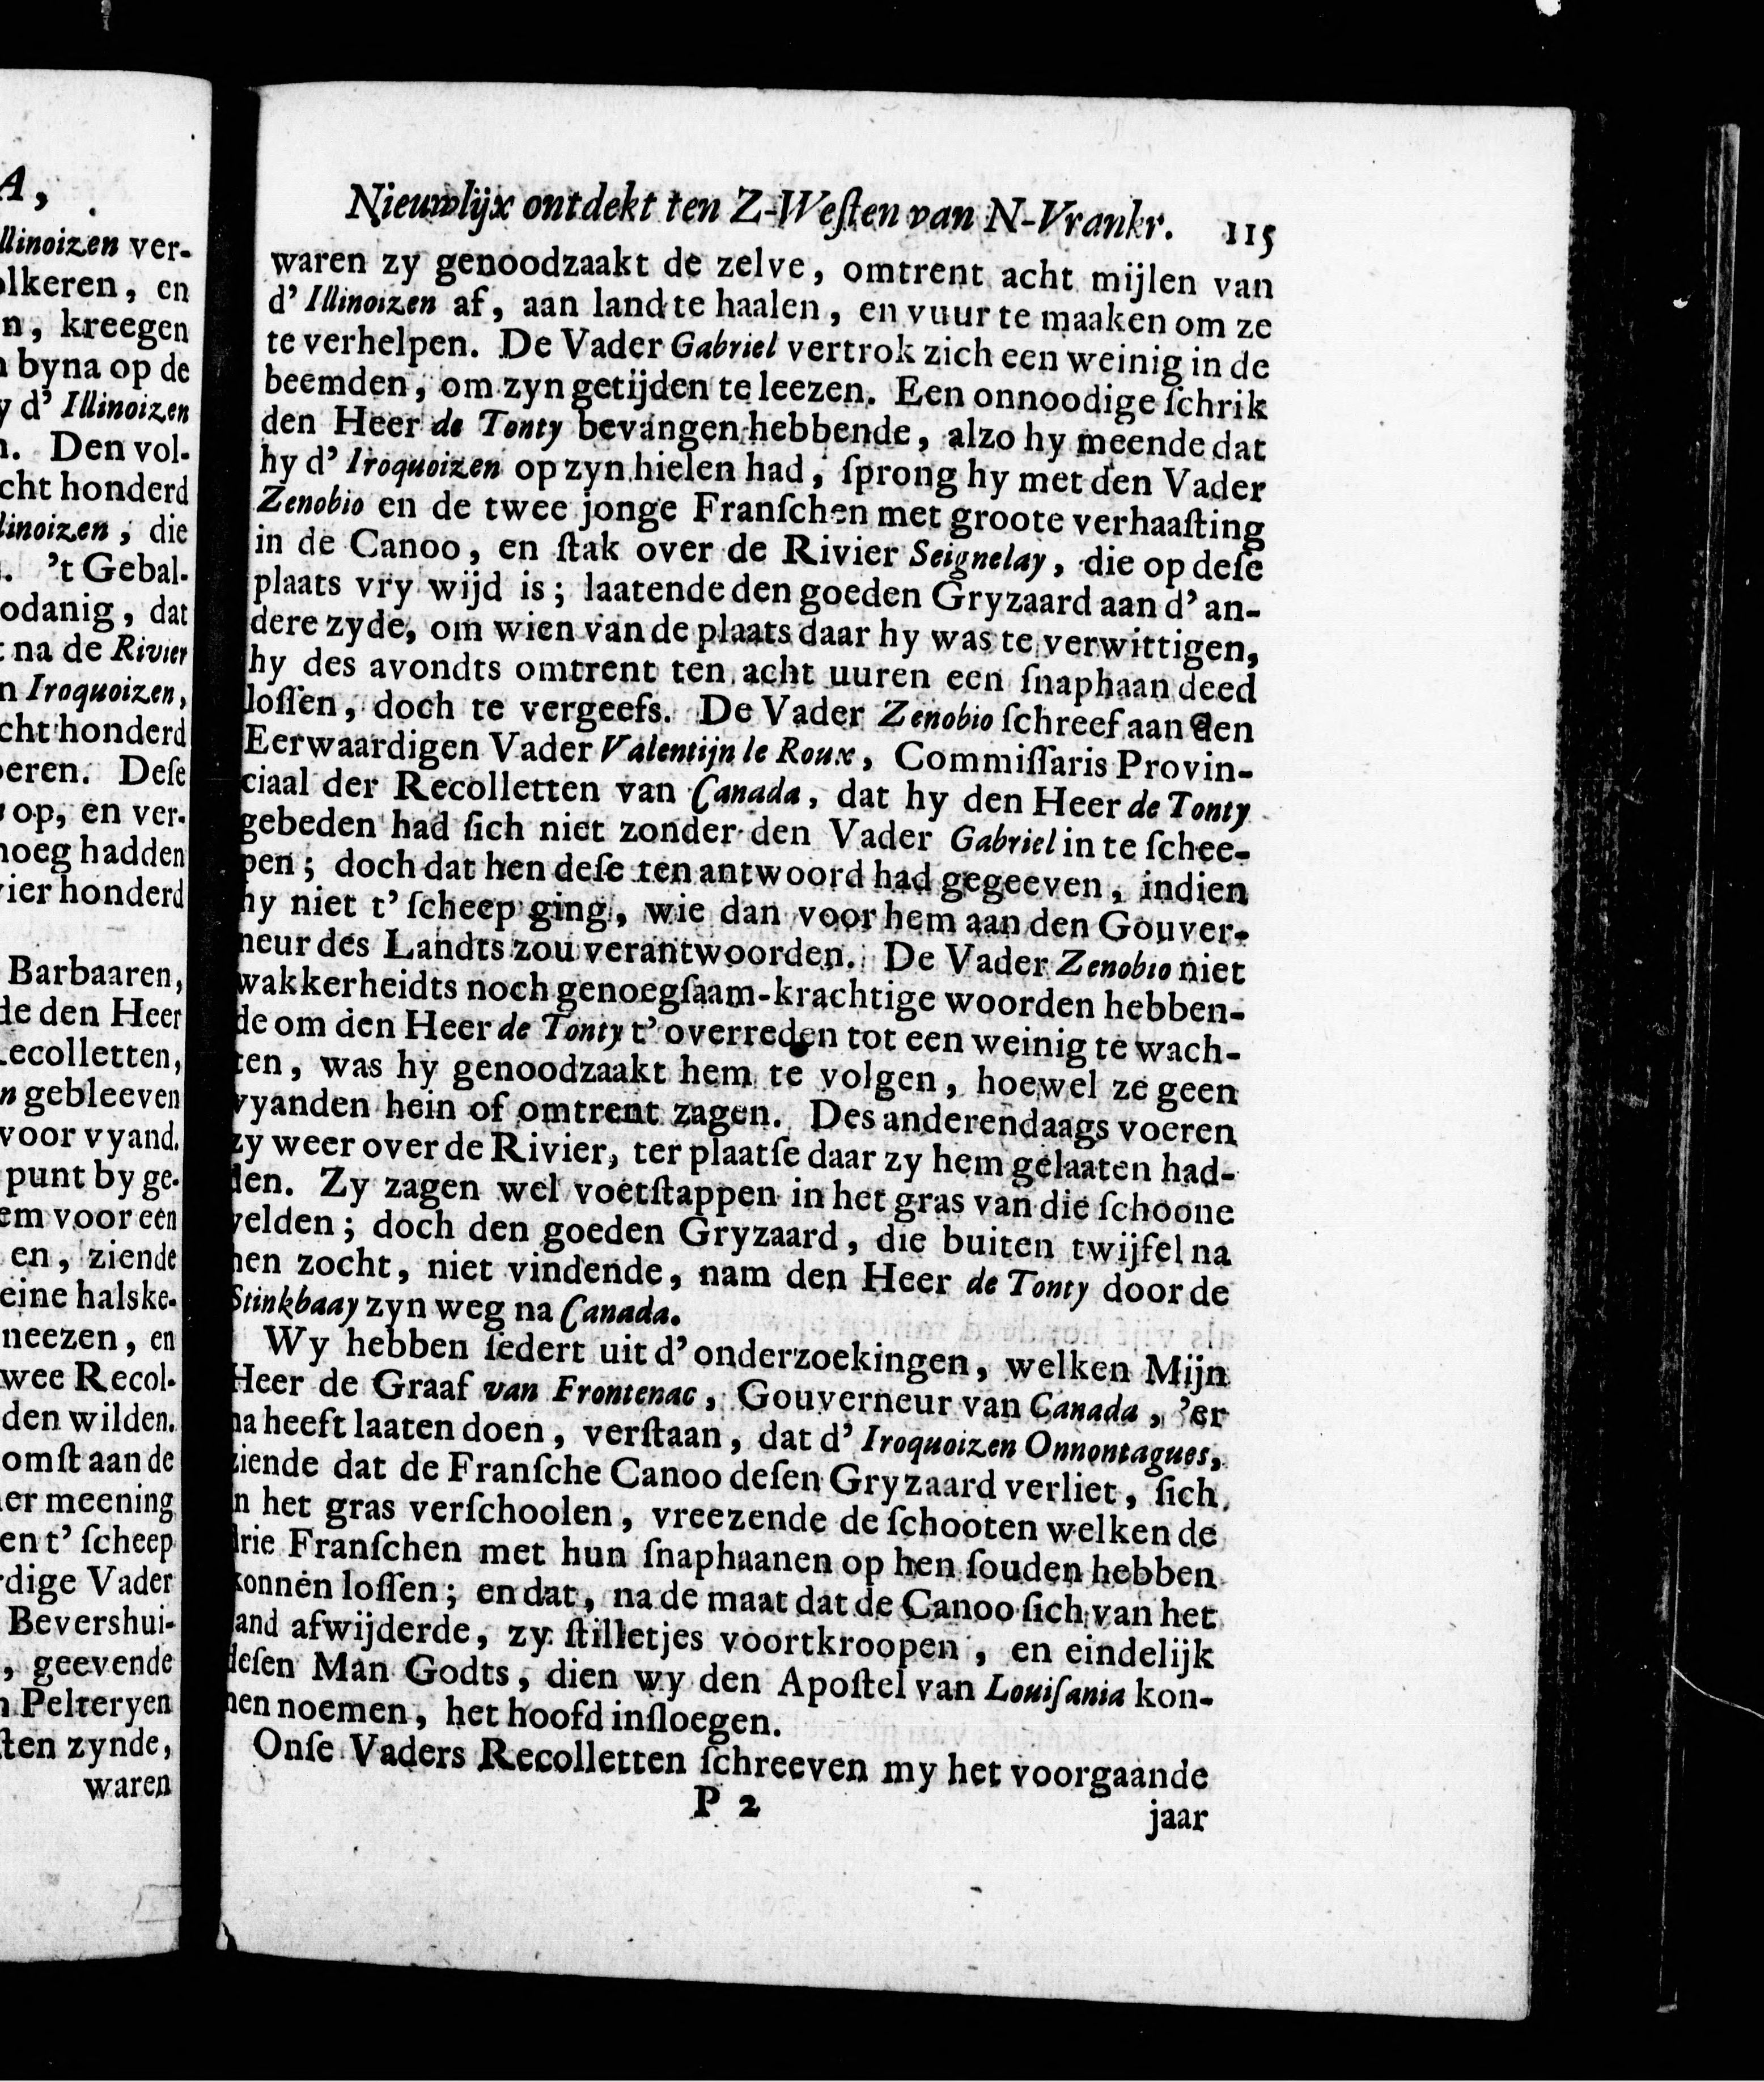 A,
llinoizen ver-
olkeren, en
n, kreegen
n byna op de
y d' Illinoizen
n. Den vol-
cht honderd
linoizen, die
. 't Gebal-
odanig, dat
t na de Rivier
n Iroquoizen,
cht honderd
oeren. Deſe
op, en ver-
noeg hadden
vier honderd
Barbaaren,
de den Heer
Recolletten,
n gebleeven
voor vyand.
punt by ge-
em voor een
en, ziende
eine halske-
neezen, en
wee Recol-
den wilden.
omſt aan de
er meening
en t' ſcheep
rdige Vader
Bevershui-
, geevende
n Pelteryen
ſten zynde,
waren
Nieuwlijx ontdekt ten Z-Weſten van N-Vrankr. 115
waren zy genoodzaakt de zelve, omtrent acht mijlen van
d' Illinoizen af, aan land te haalen, en vuur te maaken om ze
te verhelpen. De Vader Gabriel vertrok zich een weinig in de
beemden, om zyn getijden te leezen. Een onnoodige ſchrik
den Heer de Tonty bevangen hebbende, alzo hy meende dat
hy d' Iroquoizen op zyn hielen had, ſprong hy met den Vader
Zenobio en de twee jonge Franſchen met groote verhaaſting
in de Canoo, en ſtak over de Rivier Seignelay, die op deſe
plaats vry wijd is; laatende den goeden Gryzaard aan d' an-
dere zyde, om wien van de plaats daar hy was te verwittigen,
hy des avondts omtrent ten acht uuren een ſnaphaan deed
loſſen, doch te vergeefs. De Vader Zenobio ſchreef aan den
Eerwaardigen Vader Valentijn le Roux, Commiſſaris Provin-
ciaal der Recolletten van Canada, dat hy den Heer de Tonty
gebeden had ſich niet zonder den Vader Gabriel in te ſchee-
pen; doch dat hen deſe ten antwoord had gegeeven, indien
hy niet t' ſcheep ging, wie dan voor hem aan den Gouver-
neur des Landts zou verantwoorden. De Vader Zenobio niet
wakkerheidts noch genoegſaam-krachtige woorden hebben-
de om den Heer de Tonty t' overreden tot een weinig te wach-
ten, was hy genoodzaakt hem te volgen, hoewel ze geen
vyanden hein of omtrent zagen. Des anderendaags voeren
zy weer over de Rivier, ter plaatſe daar zy hem gelaaten had-
den. Zy zagen wel voetſtappen in het gras van die ſchoone
velden; doch den goeden Gryzaard, die buiten twijfel na
hen zocht, niet vindende, nam den Heer de Tonty door de
Stinkbaay zyn weg na Canada.
Wy hebben ſedert uit d' onderzoekingen, welken Mijn
Heer de Graaf van Frontenac, Gouverneur van Canada, 'er
na heeft laaten doen, verſtaan, dat d' Iroquoizen Onnontagues,
ziende dat de Franſche Canoo deſen Gryzaard verliet, ſich
in het gras verſchoolen, vreezende de ſchooten welken de
drie Franſchen met hun ſnaphaanen op hen ſouden hebben
konnen loſſen; en dat, na de maat dat de Canoo ſich van het
land afwijderde, zy ſtilletjes voortkroopen, en eindelijk
deſen Man Godts, dien wy den Apoſtel van Louiſania kon-
nen noemen, het hoofd inſloegen.
Onſe Vaders Recolletten ſchreeven my het voorgaande
P 2
jaar